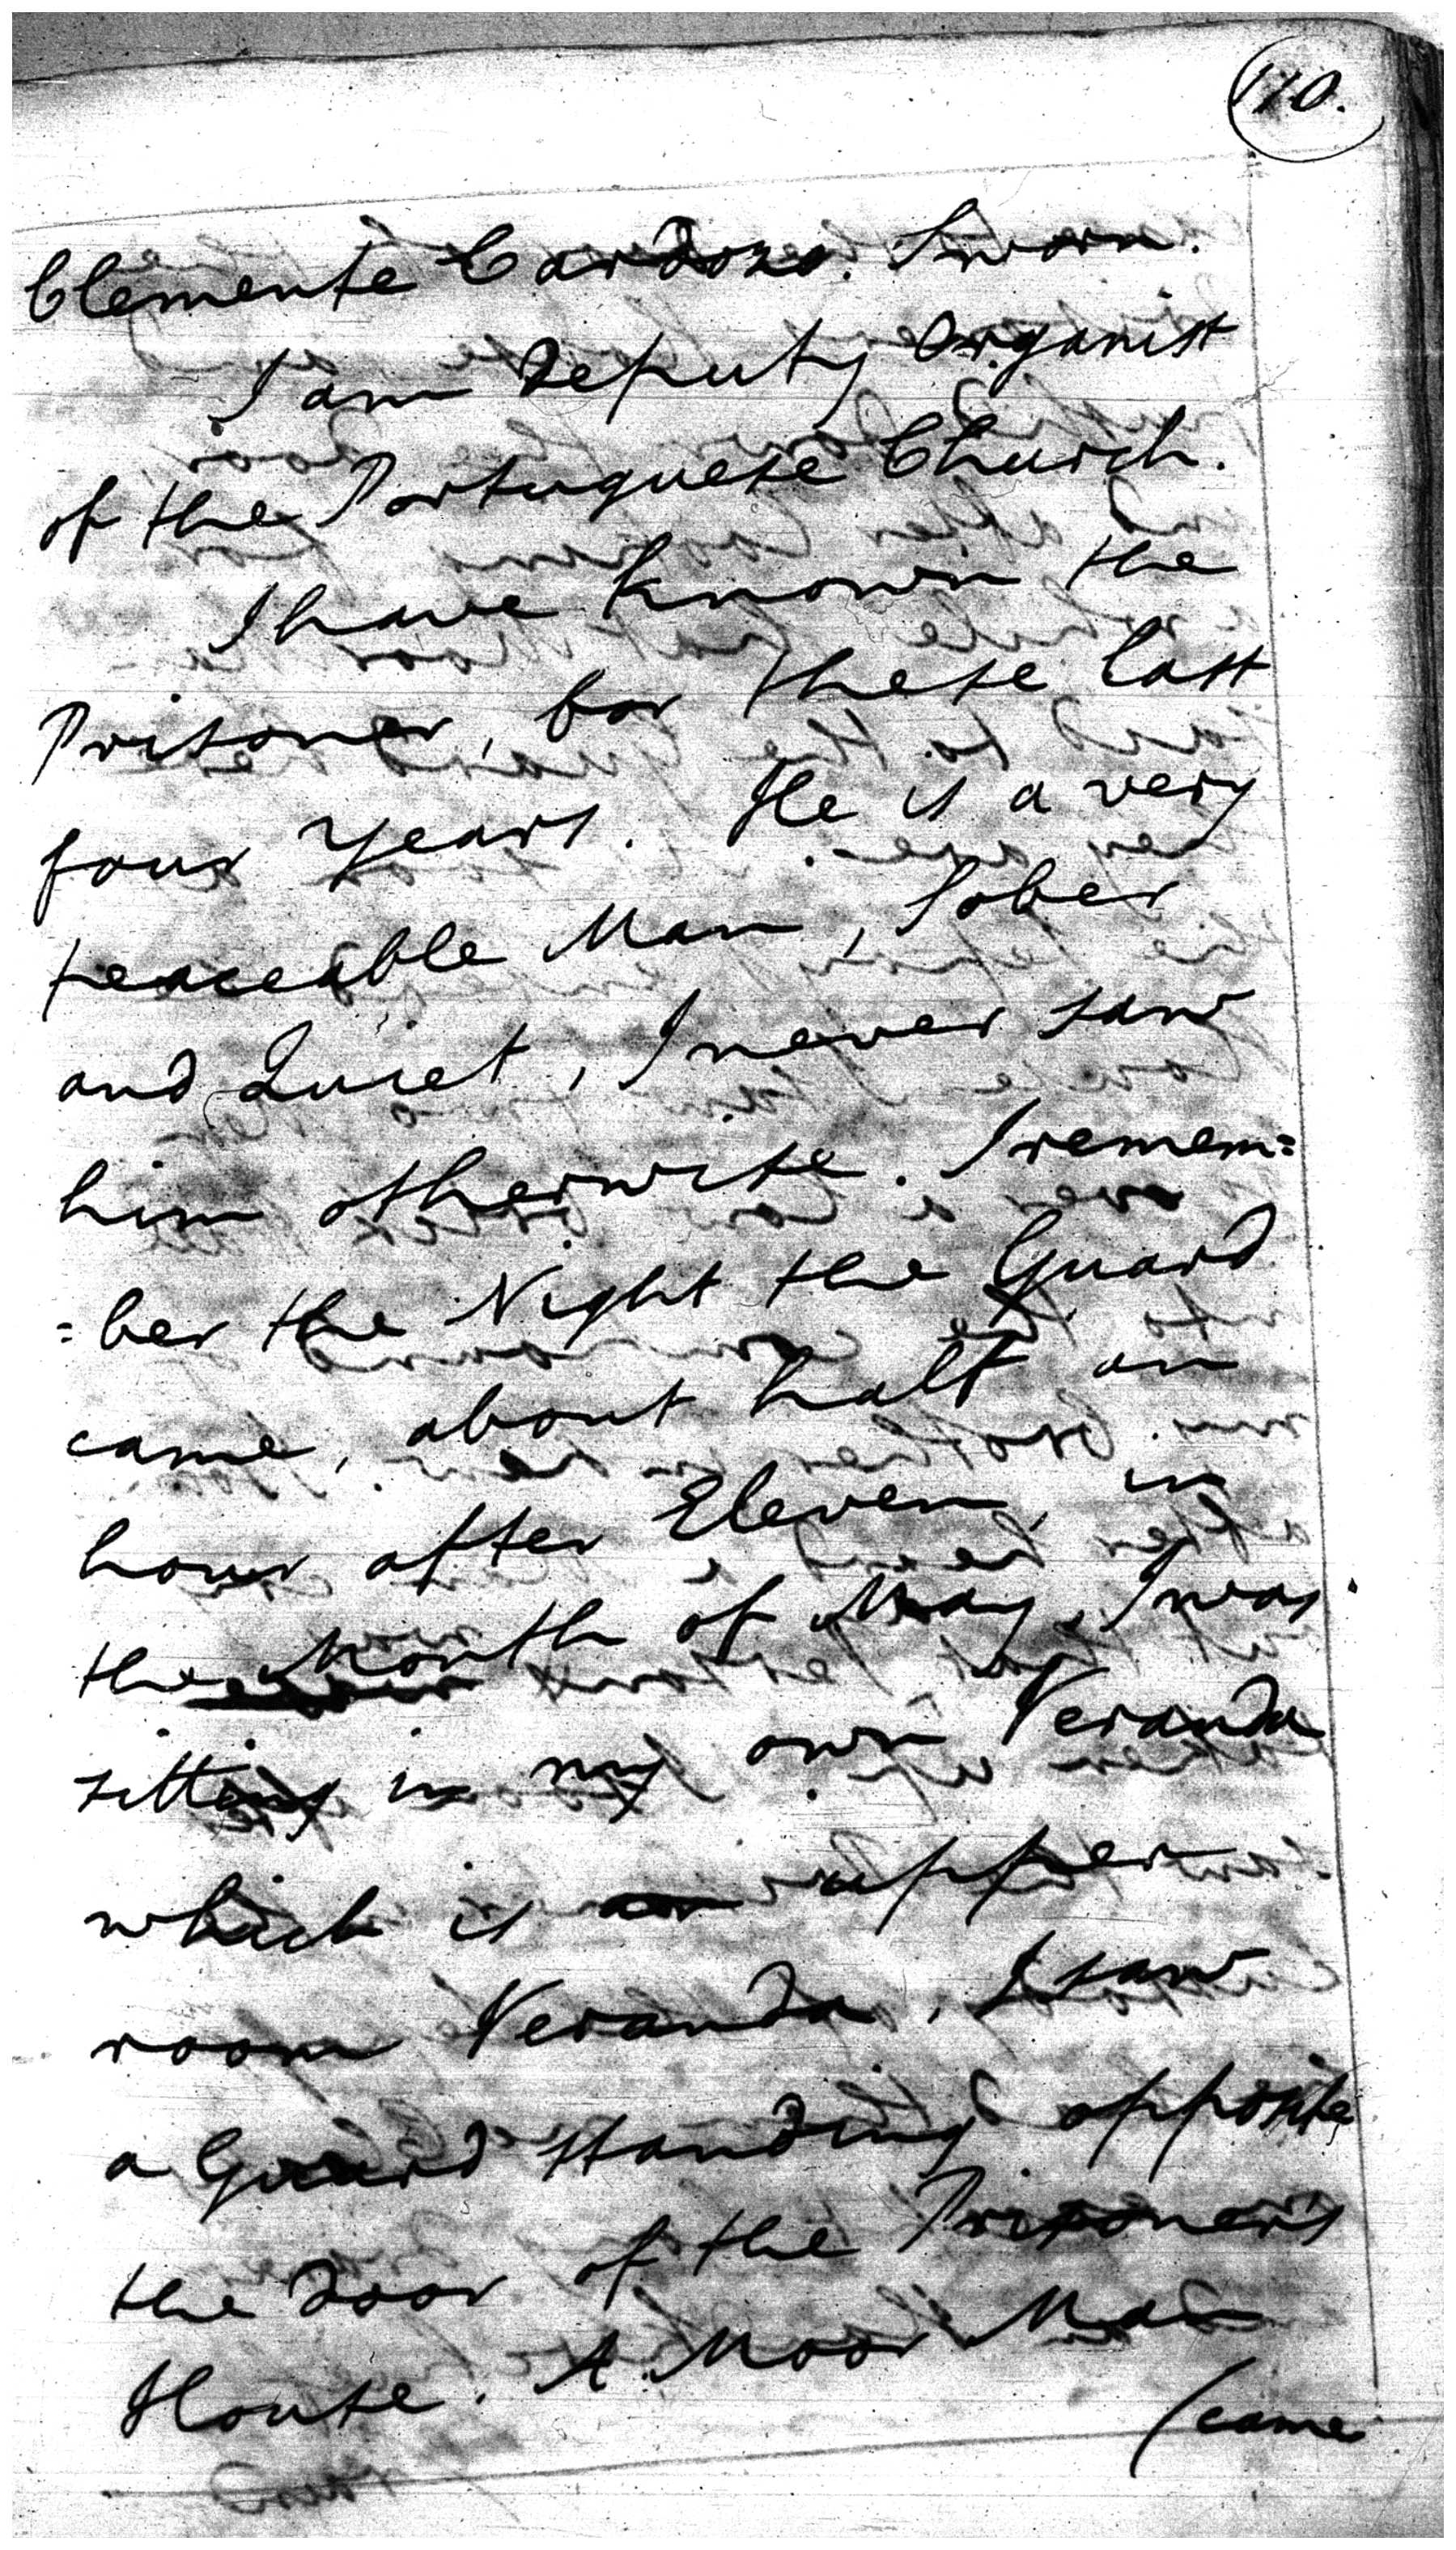 110.
Clemente Cardozo. Sworn.
I am Deputy Organist
of the Portuguese Church.
I have known the
Prisoner, for these last
four Years. He is a very
peaceable Man, Sober
and Quiet, I never saw
him otherwise. I remem=
=ber the Night the Guard
came, about half an
hour after Eleven, in
the Month of May, I was
sitting in my own Veranda
which is upper
room Veranda, I saw
a Guard standing opposite
the Door of the Prisoner's
House. A Moor Man
(came